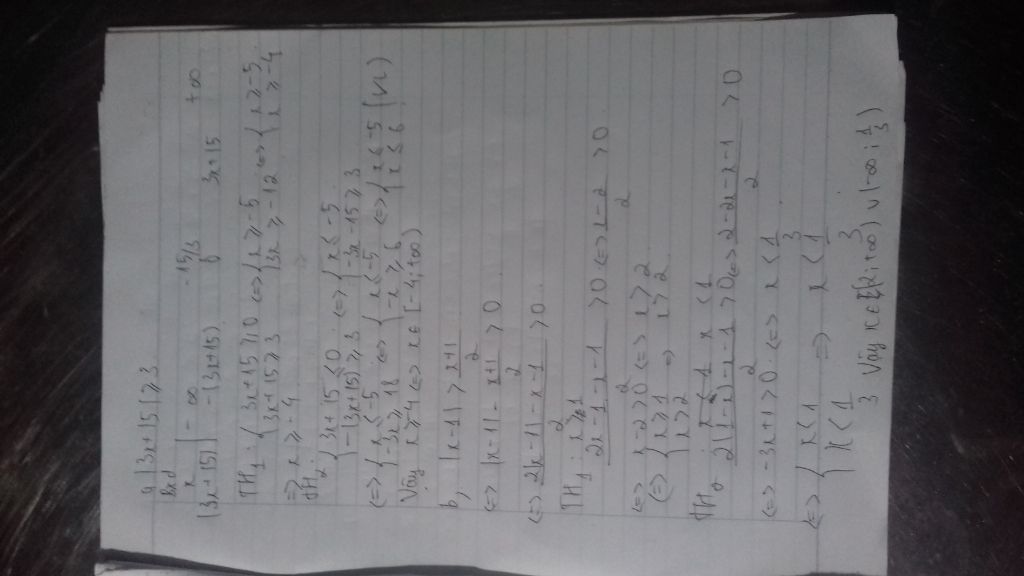 a, |3x+15| ≥ 3
Bxd
x | -∞ -15/3 +∞
|3x+15| | -(3x+15) 0 3x+15
TH1: { 3x+15 ≥ 0 <=> { x ≥ -5 <=> { x ≥ -5
{ 3x+15 ≥ 3 { 3x ≥ -12 { x ≥ -4
=> x ≥ -4
TH2: { 3x+15 < 0 <=> { x < -5
{ -(3x+15) ≥ 3 { -3x-15 ≥ 3
<=> { x < -5 <=> { x < -5 <=> { x < -5 (vn)
{ -3x ≥ 18 { -x ≥ 6 { x ≤ 6
Vậy x ≥ -4 <=> x ∈ [-4; +∞)
b, |x-1| > x+1/2
<=> |x-1| - x+1/2 > 0
<=> 2|x-1| - x-1/2 > 0
TH1: x ≥ 1
2x-1-x-1/2 > 0 <=> x-2/2 > 0
<=> x-2 > 0 <=> x > 2
<=> { x ≥ 1 => x > 2
{ x > 2
TH2 x < 1
2(1-x)-x-1/2 > 0 <=> 2-2x-x-1/2 > 0
<=> -3x+1 > 0 <=> x < 1/3
<=> { x < 1 => x < 1/3
{ x < 1/3 Vậy x ∈ ; +∞) ∪ (-∞; 1/3)